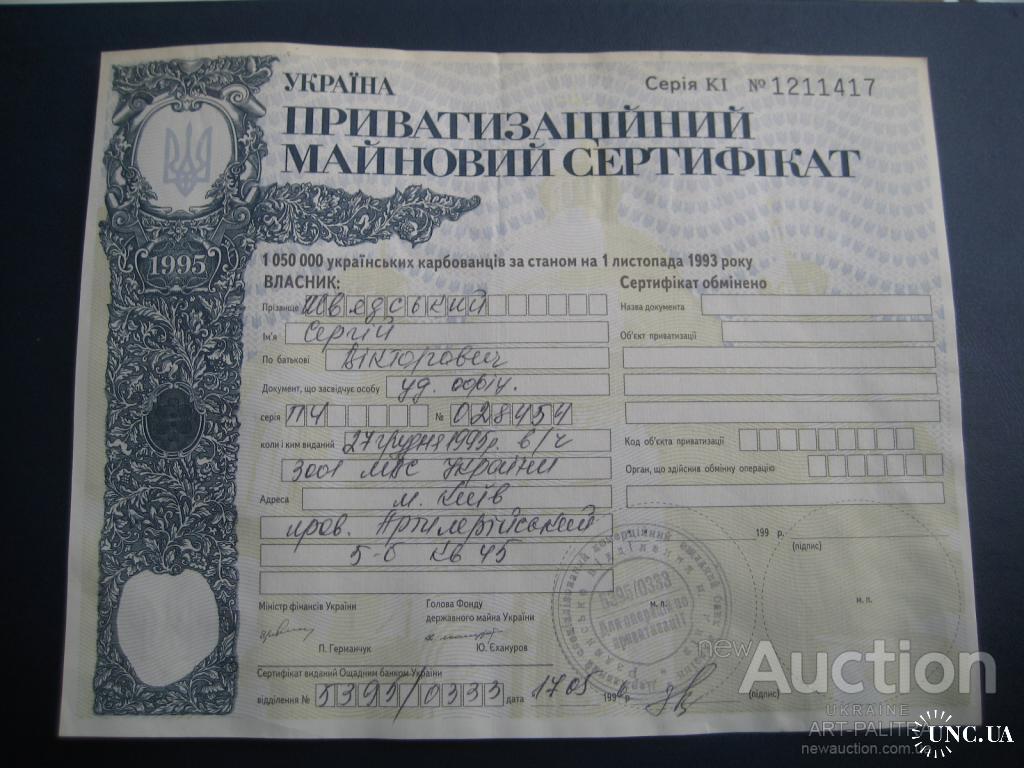 УКРАЇНА
Серія КІ № 1211417
ПРИВАТИЗАЦІЙНИЙ
МАЙНОВИЙ СЕРТИФІКАТ
1995
1 050 000 українських карбованців за станом на 1 листопада 1993 року
ВЛАСНИК:
Прізвище
Ім'я Сергій
По батькові Вікторович
Документ, що засвідчує особу уд. офіц.
серія ПЧ № 028454
коли і ким виданий 27 грудня 1995р. в/ч
3001 МВС України
Адреса м. Київ
пров. Артилерійський
5-б кв 45
Міністр фінансів України
П. Германчук
Голова Фонду
державного майна України
Ю. Єхануров
Сертифікат виданий Ощадним банком України
відділення № 5395/0333 дата 17 05 199 р.
(підпис)
Сертифікат обмінено
Назва документа
Об'єкт приватизації
Код об'єкта приватизації
Орган, що здійснив обмінну операцію
199 р.
(підпис)
м. п.
5395/0333
м. п.
Для операцій по
приватизації
newAuction
UKRAINE
ART-PALITRA
newauction.com.ua
UNC.UA